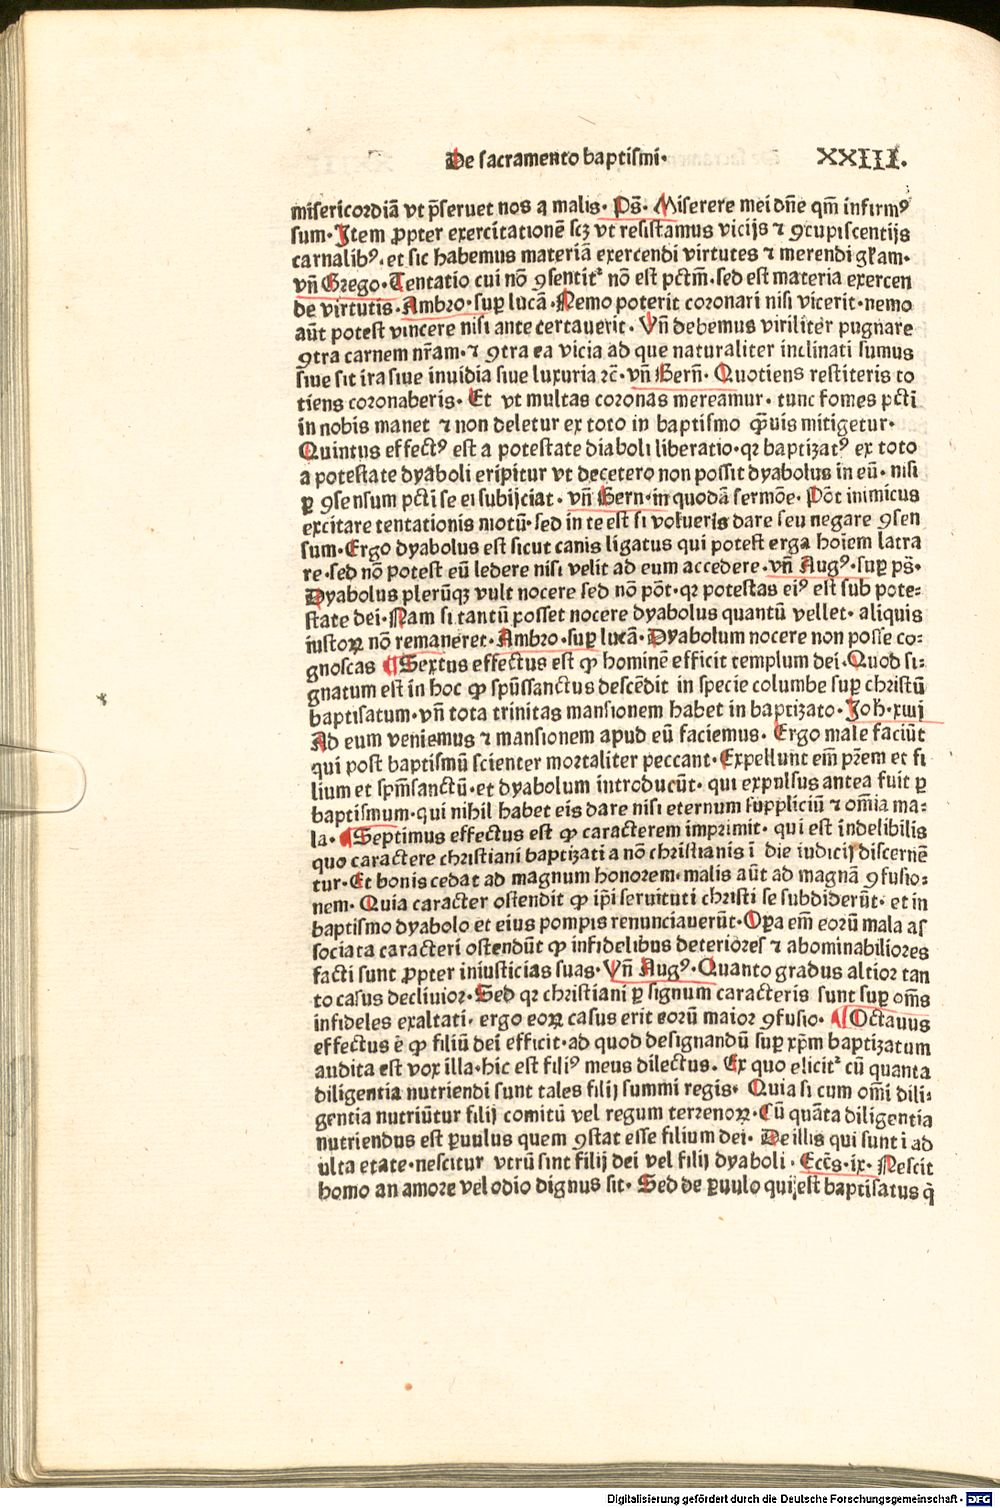 De sacramento baptismi·
XXIII.
misericordiā vt p̄seruet nos a malis· Ps̄· Miserere mei dn̄e qm̄ infirmꝰ
sum· Item ꝓpter exercitationē scꝫ vt resistamus vicijs ⁊ ꝯcupiscentijs
carnalibꝰ· et sic habemus materiā exercendi virtutes ⁊ merendi gr̄am·
vn̄ Grego· Tentatio cui nō ꝯsentit᷑ nō est pctm̄· sed est materia exercen
de virtutis· Ambro· suꝑ lucā· Nemo poterit coronari nisi vicerit· nemo
aūt potest vincere nisi ante certauerit· Vn̄ debemus viriliter pugnare
ꝯtra carnem nr̄am· ⁊ ꝯtra ea vicia ad que naturaliter inclinati sumus
siue sit ira siue inuidia siue luxuria ⁊c̄· vn̄ Bern̄· Quotiens restiteris to
tiens coronaberis· Et vt multas coronas mereamur· tunc fomes pcti
in nobis manet ⁊ non deletur ex toto in baptismo qͣ̄uis mitigetur·
Quintus effectꝰ est a potestate diaboli liberatio· qꝛ baptizatꝰ ex toto
a potestate dyaboli eripitur vt decetero non possit dyabolus in eū· nisi
ꝑ ꝯsensum pcti se ei subijciat· vn̄ Bern· in quodā sermōe· Pōt inimicus
excitare tentationis motū· sed in te est si volueris dare seu negare ꝯsen
sum· Ergo dyabolus est sicut canis ligatus qui potest erga hoīem latra
re· sed nō potest eū ledere nisi velit ad eum accedere· vn̄ Augꝰ· suꝑ ps̄·
Dyabolus plerūqꝫ vult nocere sed nō pōt· qꝛ potestas eiꝰ est sub pote⸗
state dei· Nam si tantū posset nocere dyabolus quantū vellet· aliquis
iustoꝝ nō remaneret· Ambro· suꝑ lucā· Dyabolum nocere non posse co⸗
gnoscas ¶ Sextus effectus est ꝙ hominē efficit templum dei· Quod si⸗
gnatum est in hoc ꝙ spūssanctus descēdit in specie columbe suꝑ christū
baptisatum· vn̄ tota trinitas mansionem habet in baptizato· Joh̄· xiiij
Ad eum veniemus ⁊ mansionem apud eū faciemus· Ergo male faciūt
qui post baptismū scienter mortaliter peccant· Expellunt em̄ pr̄em et fi
lium et spm̄sanctū· et dyabolum introducūt· qui expulsus antea fuit ꝑ
baptismum· qui nihil habet eis dare nisi eternum suppliciū ⁊ om̄ia ma⸗
la· ¶ Septimus effectus est ꝙ caracterem imprimit· qui est indelibilis
quo caractere christiani baptizati a nō christianis ī die iudicij discernē
tur· Et bonis cedat ad magnum honorem· malis aūt ad magnā ꝯfusio⸗
nem· Quia caracter ostendit ꝙ ip̄i seruituti christi se subdiderūt· et in
baptismo dyabolo et eius pompis renunciauerūt· Oꝑa em̄ eorū mala as
sociata caracteri ostendūt ꝙ infidelibus deteriores ⁊ abominabiliores
facti sunt ꝓpter iniusticias suas· Vn̄ Augꝰ· Quanto gradus altior tan
to casus decliuior· Sed qꝛ christiani ꝑ signum caracteris sunt suꝑ om̄s
infideles exaltati· ergo eoꝝ casus erit eorū maior ꝯfusio· ¶ Octauus
effectus ē ꝙ filiū dei efficit· ad quod designandū suꝑ xp̄m baptizatum
audita est vox illa· hic est filiꝰ meus dilectus· Ex quo elicit᷑ cū quanta
diligentia nutriendi sunt tales filij summi regis· Quia si cum om̄i dili⸗
gentia nutriūtur filij comitū vel regum terrenoꝝ· Cū quāta diligentia
nutriendus est ꝑuulus quem ꝯstat esse filium dei· De illis qui sunt i ad
ulta etate· nescitur vtrū sint filij dei vel filij dyaboli· Ecc̄s· ix· Nescit
homo an amore vel odio dignus sit· Sed de ꝑuulo qui est baptisatus q̇
Digitalisierung gefördert durch die Deutsche Forschungsgemeinschaft - DFG